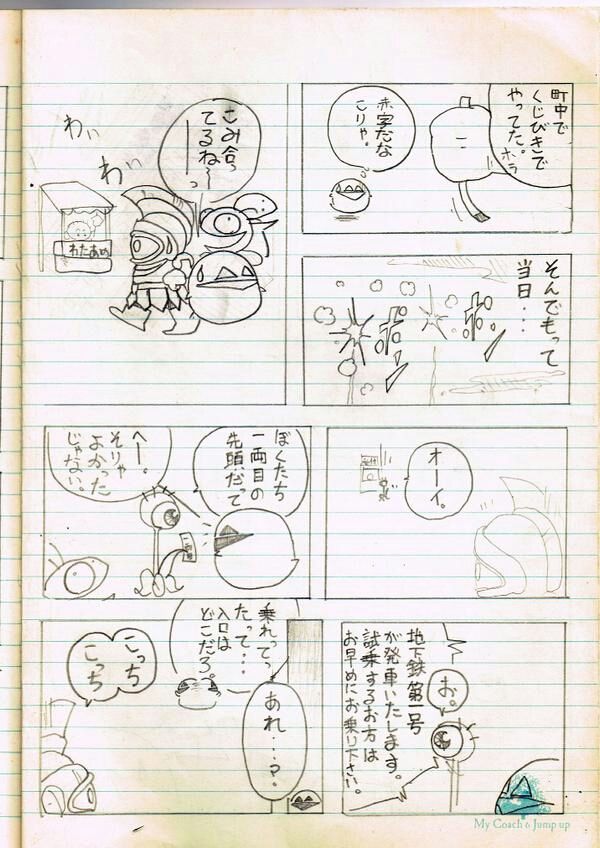 町中で
くじびきで
やってた。
ホラ
赤字だな
こりゃ。
そんでもって
当日・・・
ポン
ポン
こみ合っ
てるね〜っ
わい
わい
わたあめ
オーイ。
ぼくたち
一両目の
先頭だって
へー。
そりゃ
よかった
じゃない。
地下鉄第一号
が発車いたします。
試乗するお方は
お早めにお乗り下さい。
お。
あれ・・・?。
乗れってっ
たって・・・
入口は
どこだろ。
こっち
こっち
My Coach & Jump up